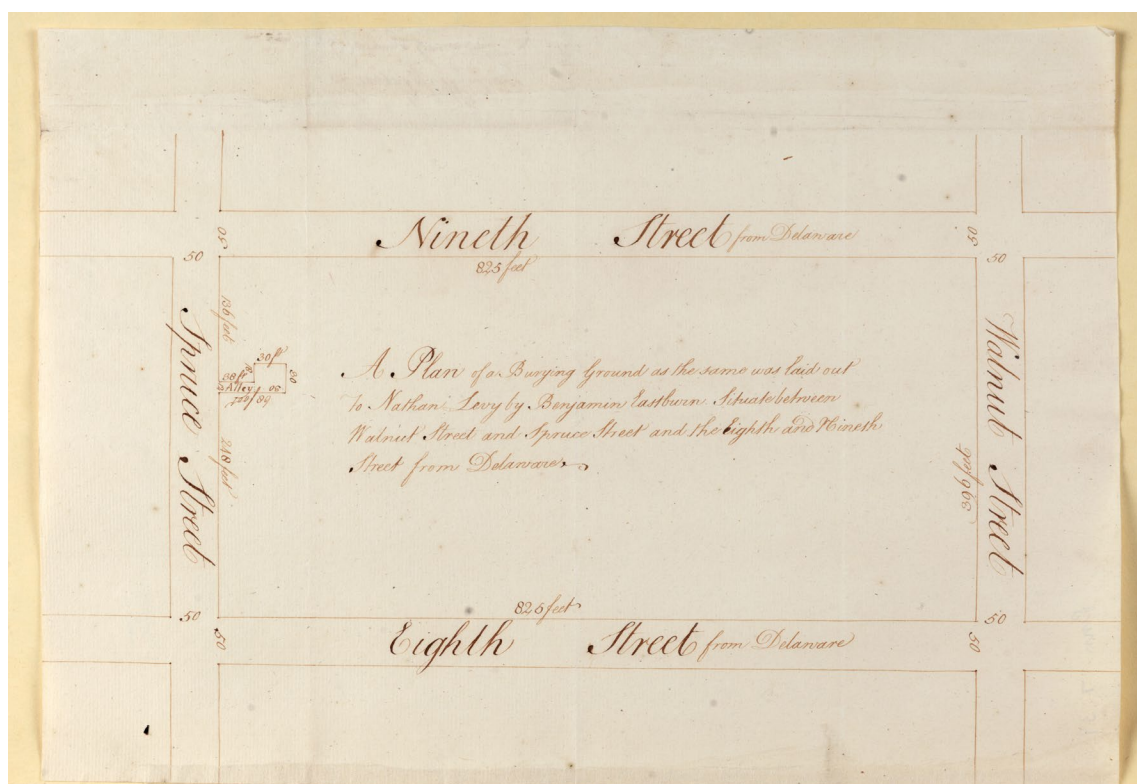 Nineth Street from Delaware
50
50
50
50
825 feet
Spruce Street
136 feet
30 ft
38 ft
30
Alley
30
68 feet
218 feet
A Plan of a Burying Ground as the same was laid out
to Nathan Levy by Benjamin Eastburn Situate between
Walnut Street and Spruce Street and the Eighth and Nineth
Street from Delaware
Walnut Street
396 feet
825 feet
50
50
50
50
Eighth Street from Delaware